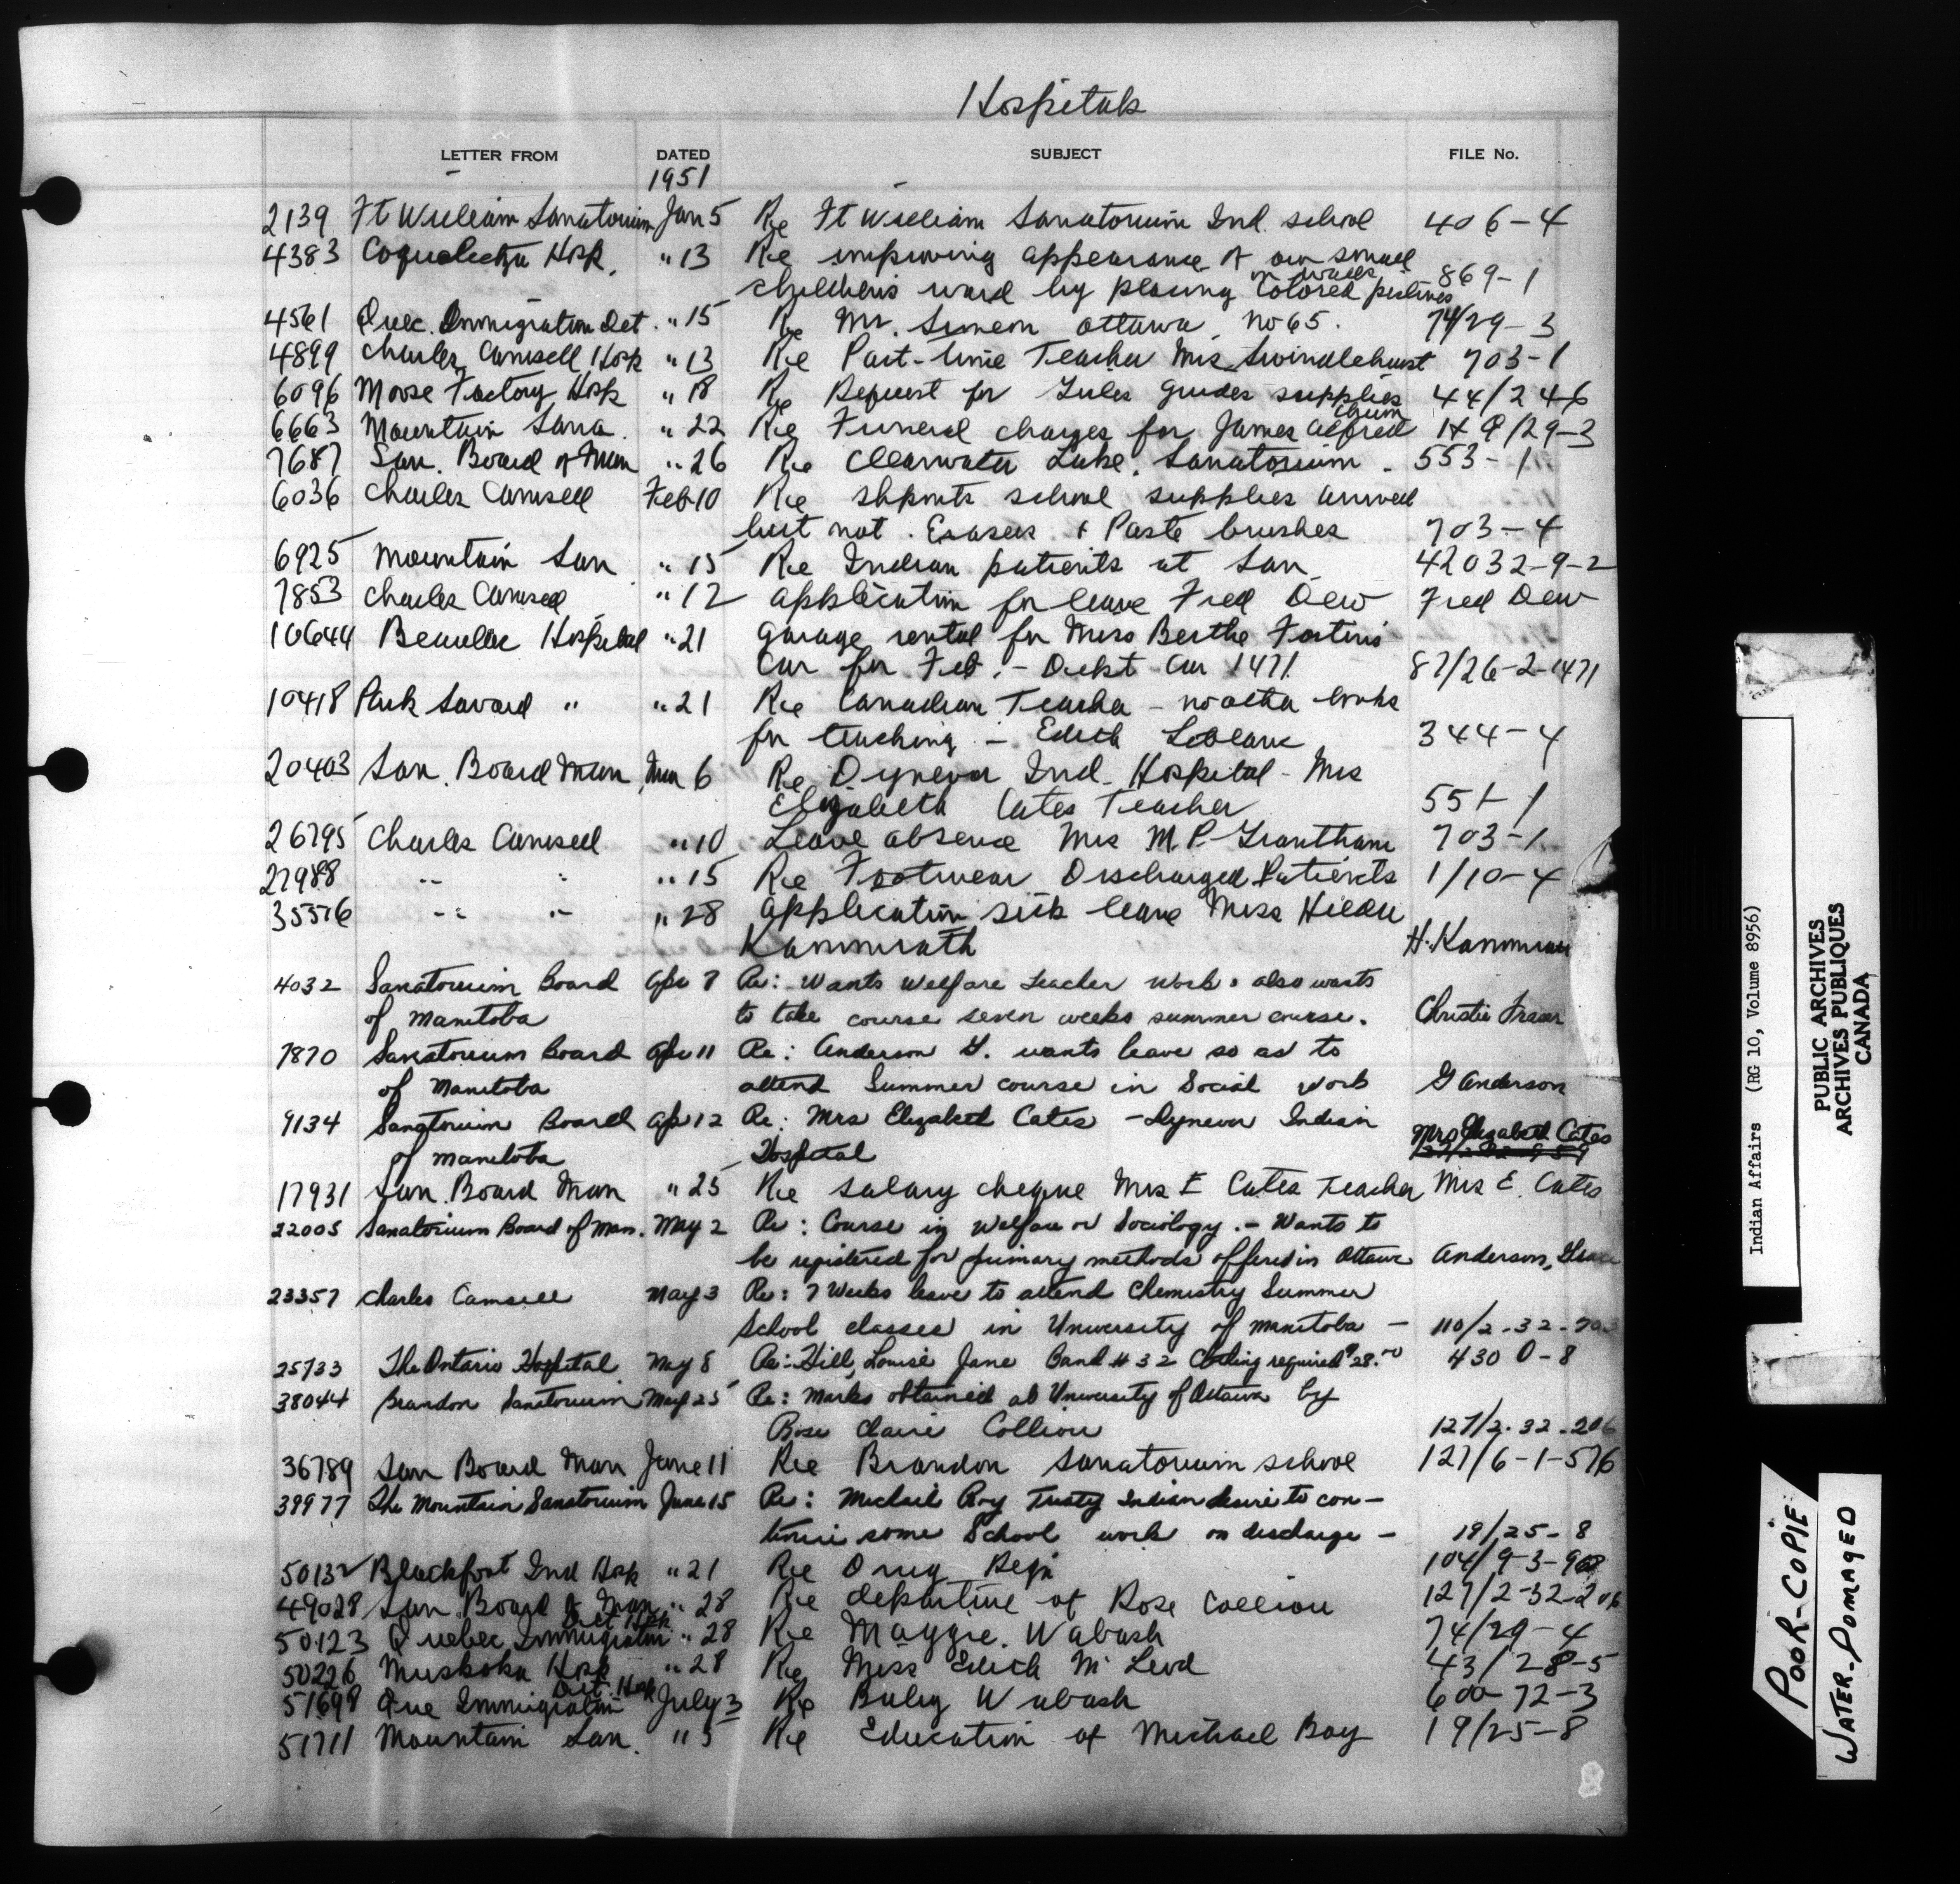 Hospitals
LETTER FROM DATED SUBJECT FILE No.
1951
2139 Ft William Sanatorium Jan 5 Re Ft William Sanatorium Ind. school 406-4
4383 Coqualeetza Hosp. " 13 Re improving appearance of our small
childrens ward by placing colored pictures on walls 869-1
4561 Quec. Immigration Det. " 15 Re Mr. Simeon Ottawa no 65. 74/29-3
4899 Charles Camsell Hosp " 13 Re Part-time Teacher Mrs Swindlehurst 703-1
6096 Moose Factory Hosp " 18 Re Request for Jules Grades supplies 44/24-6
6663 Mountain Sana. " 22 Re Funeral charges for James Alfred 29-3
7687 San. Board of Man " 26 Re Clearwater Lake. Sanatorium. 553-1
6036 Charles Camsell Feb 10 Re shpmts school supplies arrived
but not. Erasers & Paste brushes 703-4
6925 Mountain San " 15 Re Indian patients at San 42032-9-2
7853 Charles Camsell " 12 application for leave Fred Dew Fred Dew
10644 Hospital " 21 Garage rental for Miss Berthe Fortin's
Car for Feb. - Dept Car 1471 87/26-2-1471
10418 Park Savard " " 21 Re Canadian Teacher - no other books
for teaching - Edith Leblanc 344-4
20403 San. Board Man Mar 6 Re Dynevor Ind. Hospital - Mrs
Elizabeth Cates Teacher 551-1
26795 Charles Camsell " 10 Leave absence Mrs M.P. Grantham 703-1
27988 " " " 15 Re Footwear Discharged Patients 1/10-4
35576 " " " 28 application sick leave Miss Hilda
Kammrath H. Kammrath
4032 Sanatorium Board Apr 7 Re: - Wants Welfare teacher work, also wants
of Manitoba to take course seven weeks summer course. Christie Fraser
7870 Sanatorium Board Apr 11 Re: Anderson G. wants leave so as to
of Manitoba attend Summer course in Social work G Anderson
9134 Sanatorium Board Apr 12 Re: Mrs Elizabeth Cates - Dynevor Indian
of Manitoba Hospital Mrs Elizabeth Cates
17931 San. Board Man " 25 Re salary cheque Mrs E Cates Teacher Mrs E. Cates
22005 Sanatorium Board of Man. May 2 Re: Course in Welfare or Sociology. - Wants to
be registered for primary methods offered in Ottawa Anderson,
23357 Charles Camsell May 3 Re: 7 Weeks leave to attend Chemistry Summer
School classes in University of Manitoba - 110/2-32-703
25733 The Ontario Hospital May 8 Re: Hill, Louise Jane Band # 32 Clothing required $28.00 430 0-8
38044 Brandon Sanatorium May 25 Re: Marks obtained at University of Ottawa by
Rose Claire Colliou 127/2-32-206
36789 San Board Man June 11 Re Brandon Sanatorium school 127/6-1-576
39977 The Mountain Sanatorium June 15 Re: Michael Roy Indian desire to con-
tinue some School work on discharge - 19/25-8
50132 Blackfoot Ind Hosp " 21 Re Drug Reqn 104/9-3-
49028 San Board of Man " 28 Re departure of Rose Colliou 127/2-32-206
50123 Quebec Immigration Det Hosp " 28 Re Maggie. Wabash 74/29-4
50226 Muskoka Hosp " 28 Re Miss Edith McLeod 43/28-5
51698 Que Immigration Det. Hosp July 3 Re Baby Wabash 600-72-3
51711 Mountain San. " 5 Re Education of Michael Roy 19/25-8
Indian Affairs (RG 10, Volume 8956)
PUBLIC ARCHIVES
ARCHIVES PUBLIQUES
CANADA
POOR-COPIE
WATER-DOMAGED